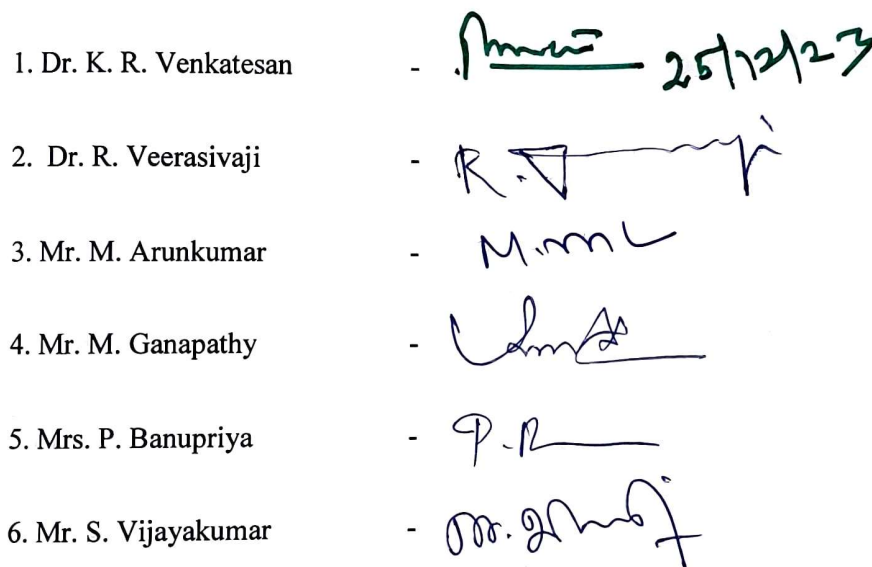 1. Dr. K. R. Venkatesan - 25/12/23
2. Dr. R. Veerasivaji - R.
3. Mr. M. Arunkumar - M.
4. Mr. M. Ganapathy -
5. Mrs. P. Banupriya - P.
6. Mr. S. Vijayakumar -